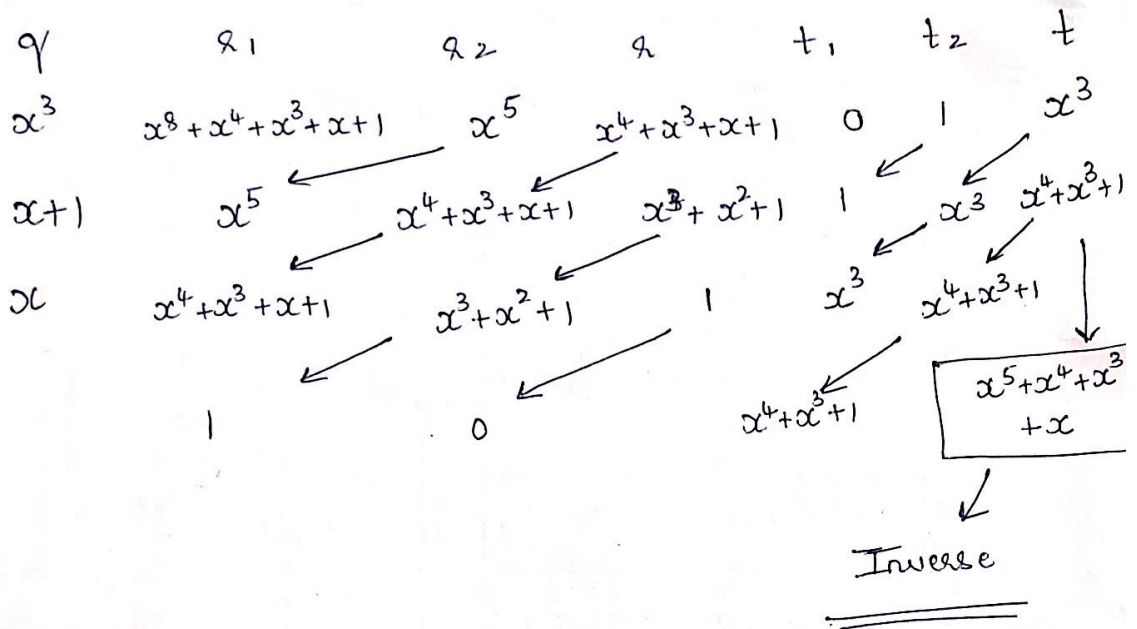 q r1 r2 r t1 t2 t
x³ x⁸+x⁴+x³+x+1 x⁵ x⁴+x³+x+1 0 1 x³
x+1 x⁵ x⁴+x³+x+1 x³+x²+1 1 x³ x⁴+x³+1
x x⁴+x³+x+1 x³+x²+1 1 x³ x⁴+x³+1
1 0 x⁴+x³+1 x⁵+x⁴+x³
+x
Inverse